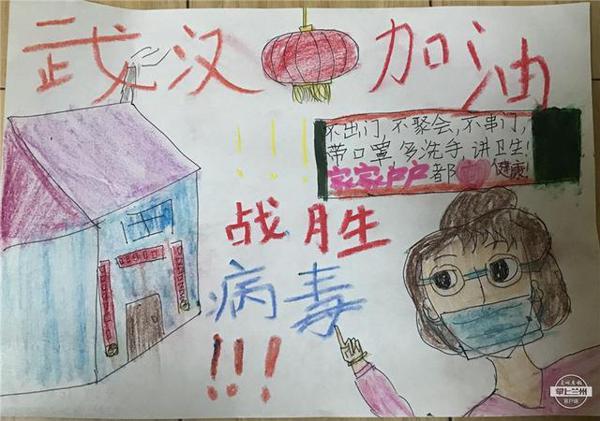 武汉加油
不出门,不聚会,不串门,
带口罩多洗手,讲卫生!
家家户户都健康!
!!!
战胜
病毒
!!!
掌上兰州
客户端